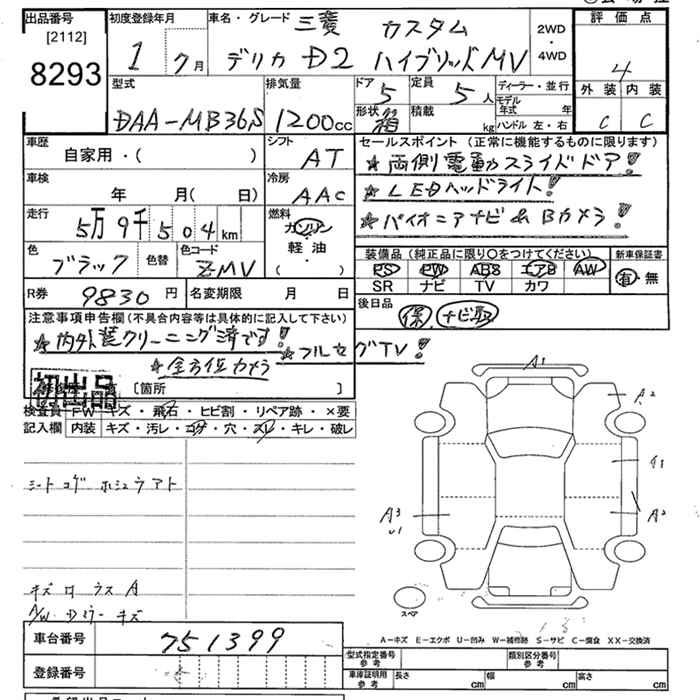 出品番号 [2112] 8293
初度登録年月 1 7月
車名・グレード 三菱 カスタム
デリカ D2 ハイブリッドMV
2WD・4WD
評価点 4
外装 内装
C C
型式 DAA-MB36S
排気量 1200cc
ドア 5
定員 5人
形状 箱
積載 kg
ディーラー・並行
モデル年式 年
ハンドル 左・右
車歴 自家用・( )
シフト AT
車検 年 月( 日)
冷房 AAC
走行 5万9千504km
燃料 ガソリン
軽油
・
( )
色 ブラック
色替
色コード ZMV
R券 9830円
名変期限 月 日
セールスポイント (正常に機能するものに限ります)
★両側電動スライドドア!
★LEDヘッドライト!
★パイオニアナビ&Bカメラ!
装備品 (純正品に限り○をつけてください)
新車保証書
PS PW ABS エアB AW
有・無
SR ナビ TV カワ
後日品 保 ナビ取
注意事項申告欄(不具合内容等は具体的に記入して下さい)
★内外装クリーニング済です! ★フルセグTV!
★全方位カメラ
初出品
[箇所 ]
検査員記入欄
FW キズ・飛石・ヒビ割・リペア跡・×要
内装 キズ・汚レ・コゲ・穴・スレ・キレ・破レ
シートコゲ ホシュウアト
キズ ロ ラス A
A/W・Dミラーキズ
A1
A2
A3
U1
A2
スペア
A-キズ E-エクボ U-凹み W-補修跡 S-サビ C-腐食 XX-交換済
車台番号 751399
登録番号
型式指定番号 参考
類別区分番号 参考
車庫証明用 参考
長さ cm
幅 cm
高さ cm